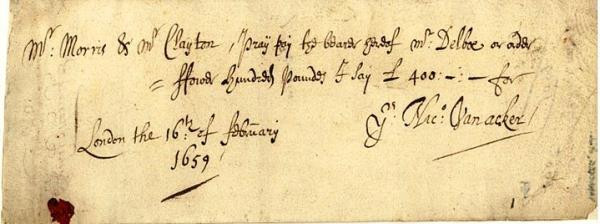 Mr: Morris & Mr Clayton, Pray pay the bearer hereof Mr. Delboe or order
= ffower Hundred Poundes I say £ 400:–:– for
London the 16th of February
1659
Yrs Nico: Vanacker